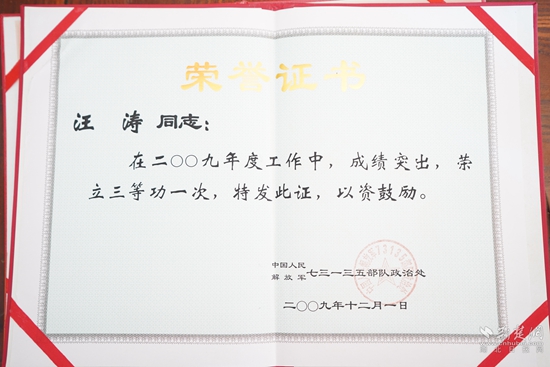 荣誉证书
汪 涛 同志:
在二〇〇九年度工作中,成绩突出,荣
立三等功一次,特发此证,以资鼓励。
中国人民
解放军 七三一三五部队政治处
二〇〇九年十二月一日
荆楚网